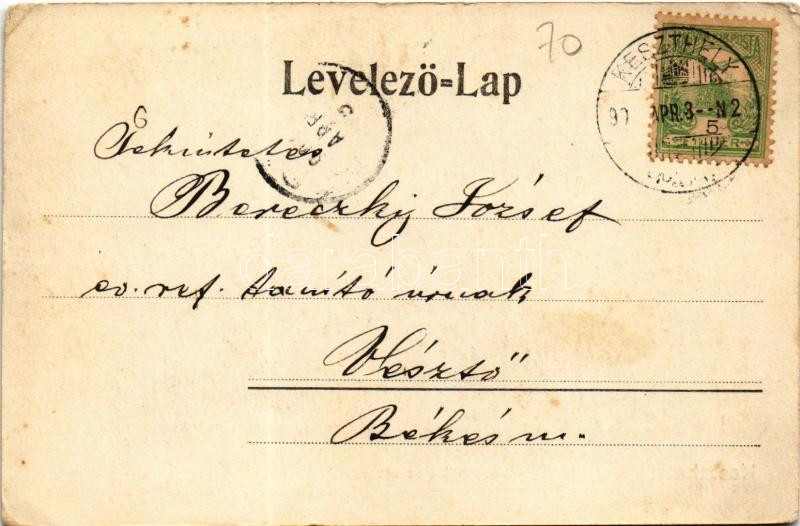 70
Levelező=Lap
KESZTHELY
APR. 3 - - N2
5
Tekintetes
Bereczky József
ev. ref. tanító úrnak
Vésztő
Békésm.
darabanth